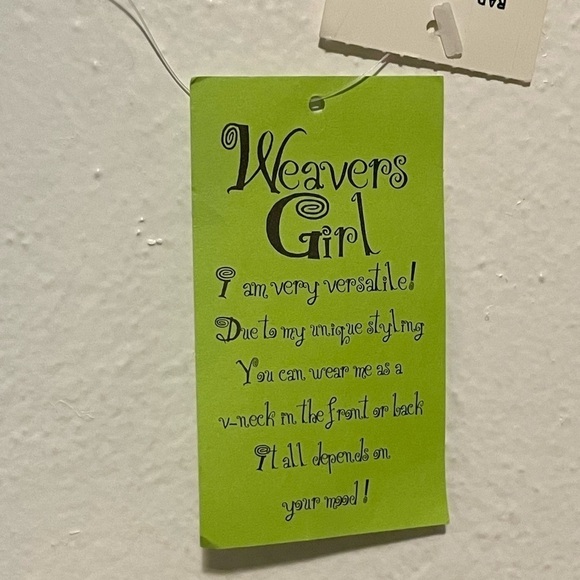 Weavers
Girl
I am very versatile!
Due to my unique styling
You can wear me as a
v-neck in the front or back
It all depends on
your mood!